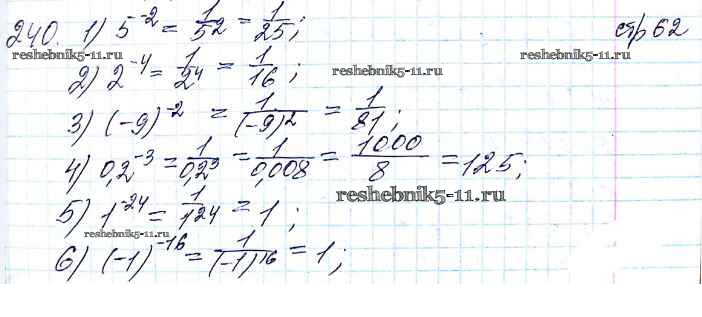 240. 1) 5^-2 = 1/5^2 = 1/25; стр 62
reshebnik5-11.ru
2) 2^-4 = 1/2^4 = 1/16; reshebnik5-11.ru
3) (-9)^-2 = 1/(-9)^2 = 1/81;
4) 0,2^-3 = 1/0,2^3 = 1/0,008 = 1000/8 = 125;
reshebnik5-11.ru
5) 1^-24 = 1/1^24 = 1;
reshebnik5-11.ru
6) (-1)^-16 = 1/(-1)^16 = 1;